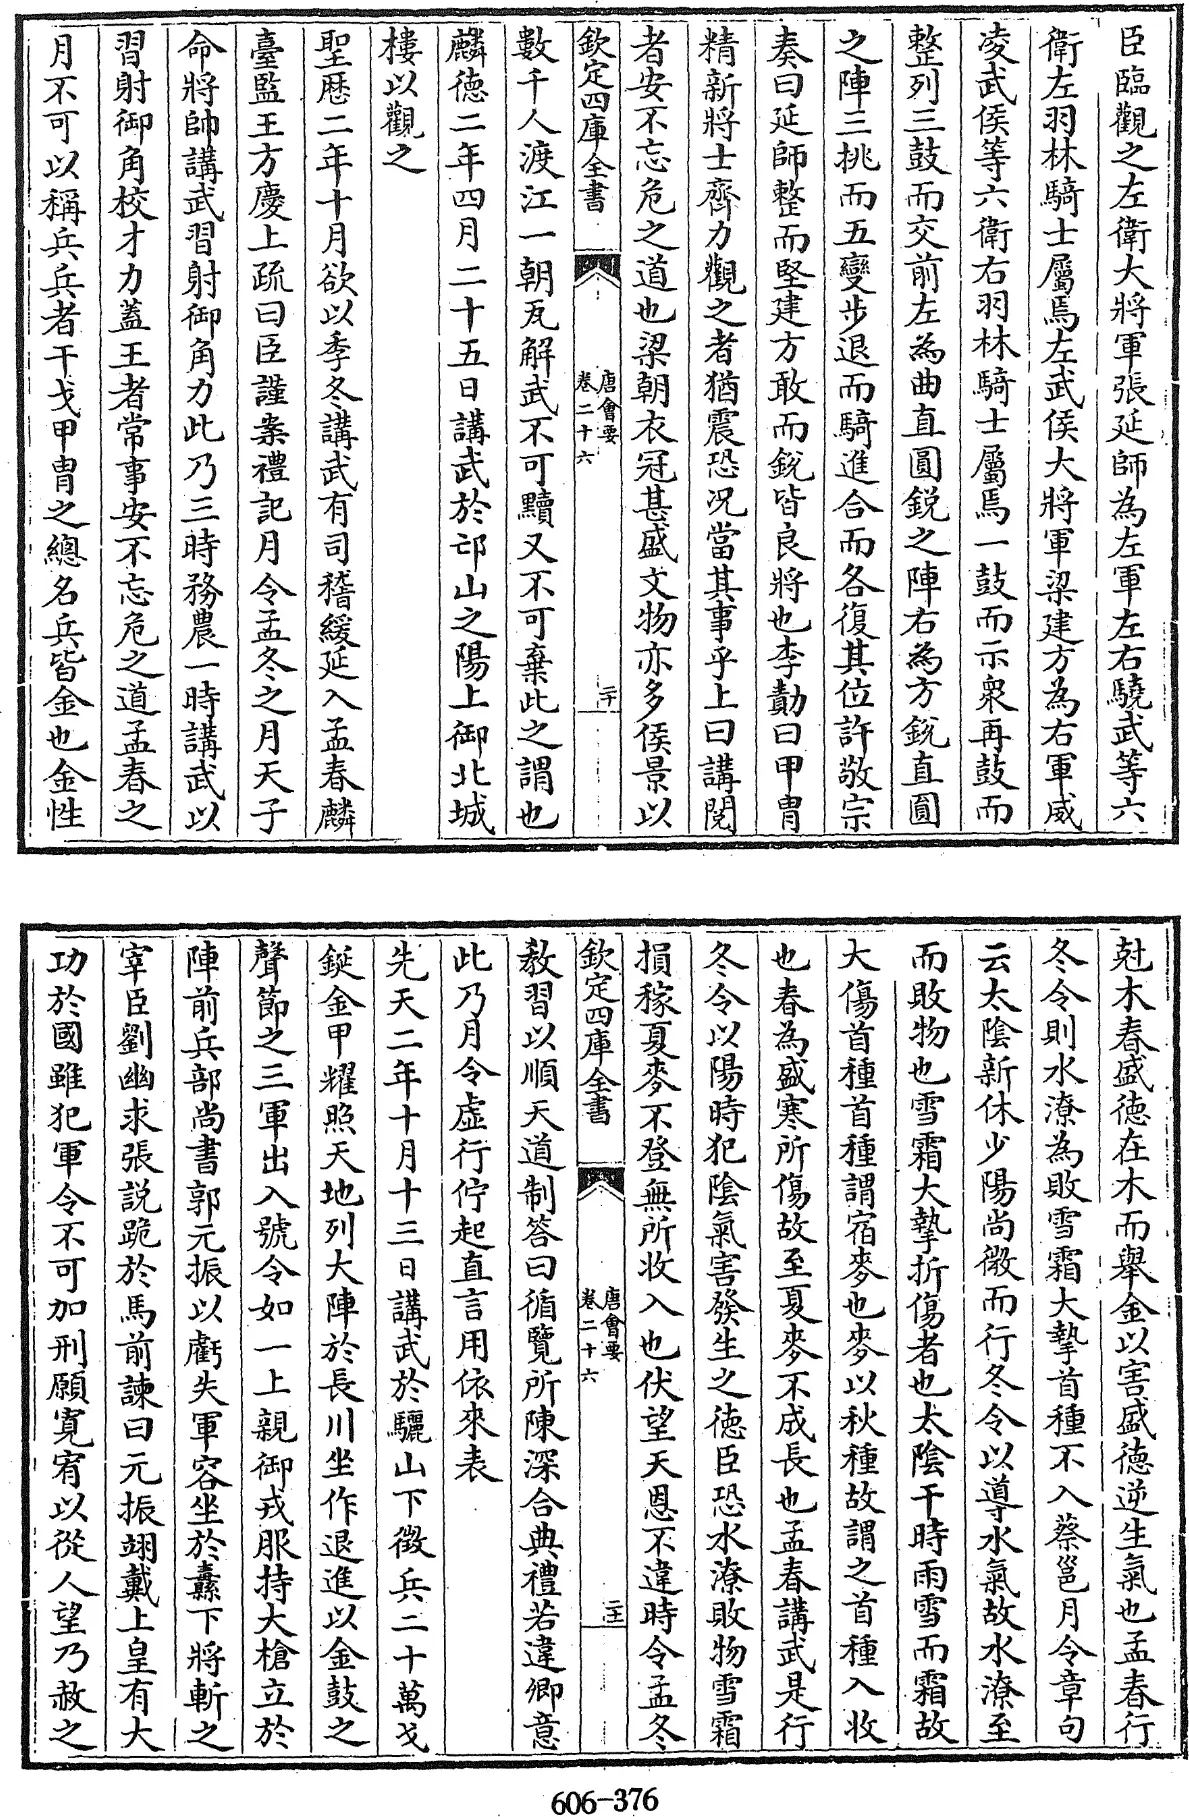 臣臨觀之左衛大將軍張延師為左軍左右驍武等六
衛左羽林騎士屬焉左武侯大將軍梁建方為右軍威
凌武侯等六衛右羽林騎士屬焉一鼓而示衆再鼓而
整列三鼓而交前左為曲直圓鋭之陣右為方鋭直圓
之陣三挑而五變步退而騎進合而各復其位許敬宗
奏曰延師整而堅建方敢而鋭皆良將也李勣曰甲胄
精新將士齊力觀之者猶震恐况當其事乎上曰講閱
者安不忘危之道也梁朝衣冠甚盛文物亦多侯景以
欽定四庫全書
唐會要
卷二十六
二十
數千人渡江一朝瓦解武不可黷又不可棄此之謂也
麟德二年四月二十五日講武於邙山之陽上御北城
樓以觀之
聖厯二年十月欲以季冬講武有司稽緩延入孟春麟
臺監王方慶上疏曰臣謹案禮記月令孟冬之月天子
命將帥講武習射御角力此乃三時務農一時講武以
習射御角校才力蓋王者常事安不忘危之道孟春之
月不可以稱兵兵者干戈甲胄之總名兵皆金也金性
尅木春盛德在木而舉金以害盛德逆生氣也孟春行
冬令則水潦為敗雪霜大摯首種不入蔡邕月令章句
云太陰新休少陽尚微而行冬令以導水氣故水潦至
而敗物也雪霜大摯折傷者也太陰干時雨雪而霜故
大傷首種首種謂宿麥也麥以秋種故謂之首種入收
也春為盛寒所傷故至夏麥不成長也孟春講武是行
冬令以陽時犯陰氣害發生之德臣恐水潦敗物雪霜
損稼夏麥不登無所收入也伏望天恩不違時令孟冬
欽定四庫全書
唐會要
卷二十六
二十一
教習以順天道制答曰循覽所陳深合典禮若違卿意
此乃月令虛行佇起直言用依來表
先天二年十月十三日講武於驪山下徵兵二十萬戈
鋋金甲耀照天地列大陣於長川坐作退進以金鼓之
聲節之三軍出入號令如一上親御戎服持大槍立於
陣前兵部尚書郭元振以虧失軍容坐於纛下將斬之
宰臣劉幽求張説跪於馬前諫曰元振翊戴上皇有大
功於國雖犯軍令不可加刑願寛宥以從人望乃赦之
606-376